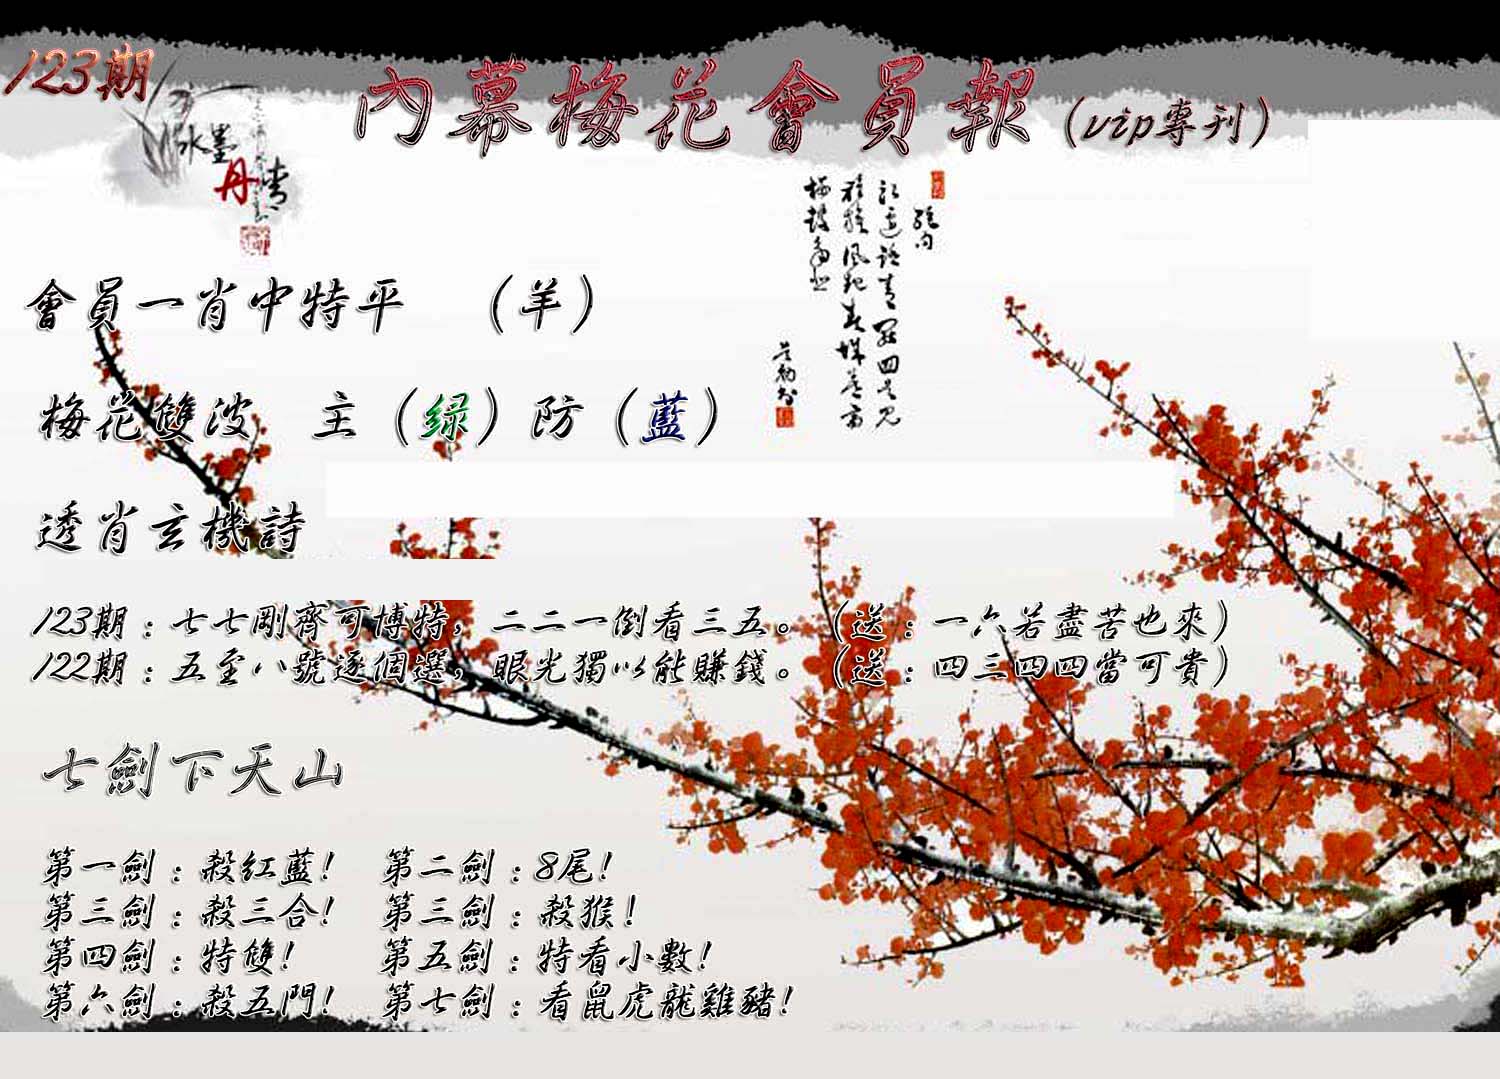 123期
內幕梅花會員報（vip專刊）
水墨
丹青
會員一肖中特平　（羊）
梅花雙波　主（绿）防（藍）
透肖玄機詩
123期：七七剛齊可博特，二二一倒看三五。（送：一六若盡苦也來）
122期：五至八號逐個選，眼光獨以能賺錢。（送：四三四四當可貴）
七劍下天山
第一劍：殺红藍！　第二劍：8尾！
第三劍：殺三合！　第三劍：殺猴！
第四劍：特雙！　第五劍：特看小數！
第六劍：殺五門！　第七劍：看鼠虎龍雞豬！